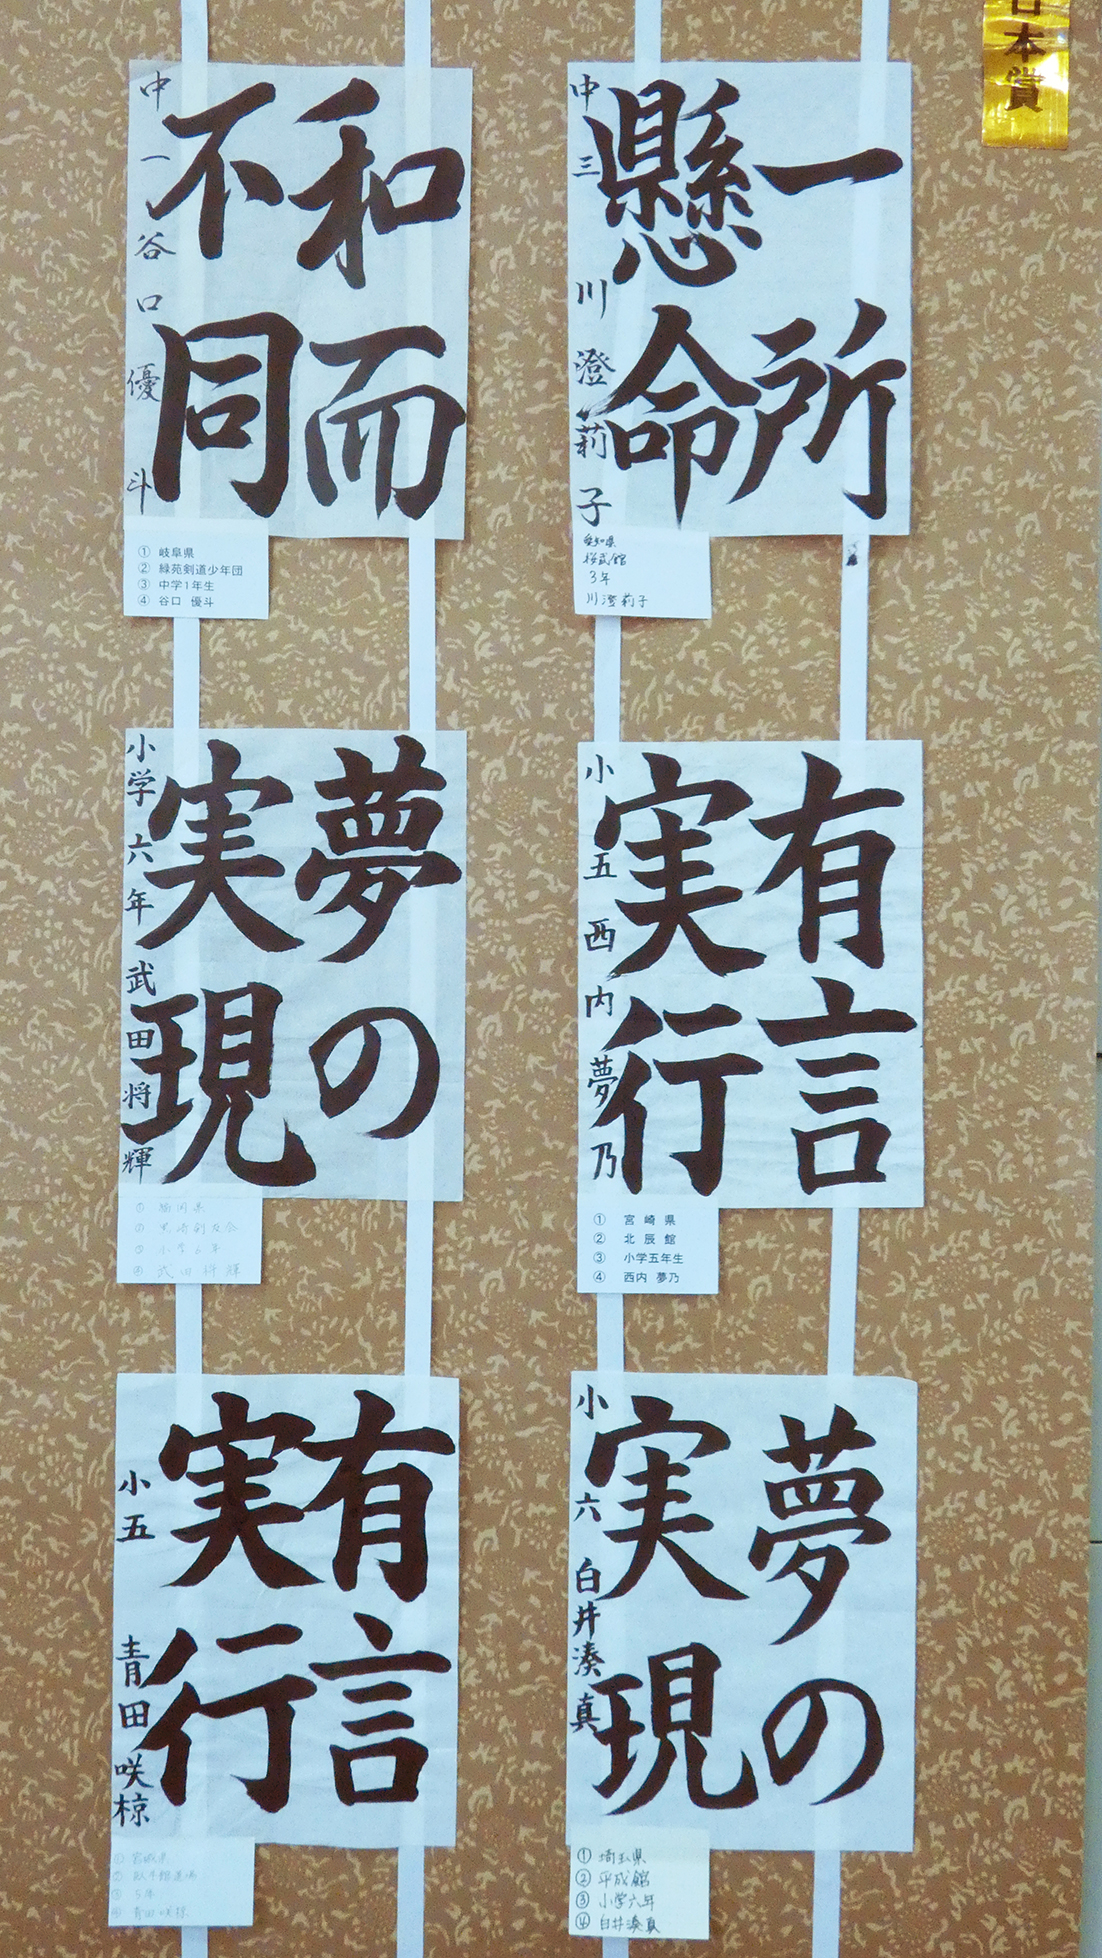 日本賞
一所
懸命
中三 川澄莉子
愛知県
桜武館
3年
川澄莉子
和而
不同
中一 谷口優斗
① 岐阜県
② 緑苑剣道少年団
③ 中学1年生
④ 谷口 優斗
有言
実行
小五 西内夢乃
① 宮崎県
② 北辰館
③ 小学五年生
④ 西内 夢乃
夢の
実現
小学六年 武田将輝
① 福岡県
② 黒崎剣友会
③ 小学6年
④ 武田将輝
夢の
実現
小六 白井湊真
① 埼玉県
② 平成館
③ 小学六年
④ 白井湊真
有言
実行
小五 青田咲椋
① 宮城県
③ 5年
④ 青田咲椋